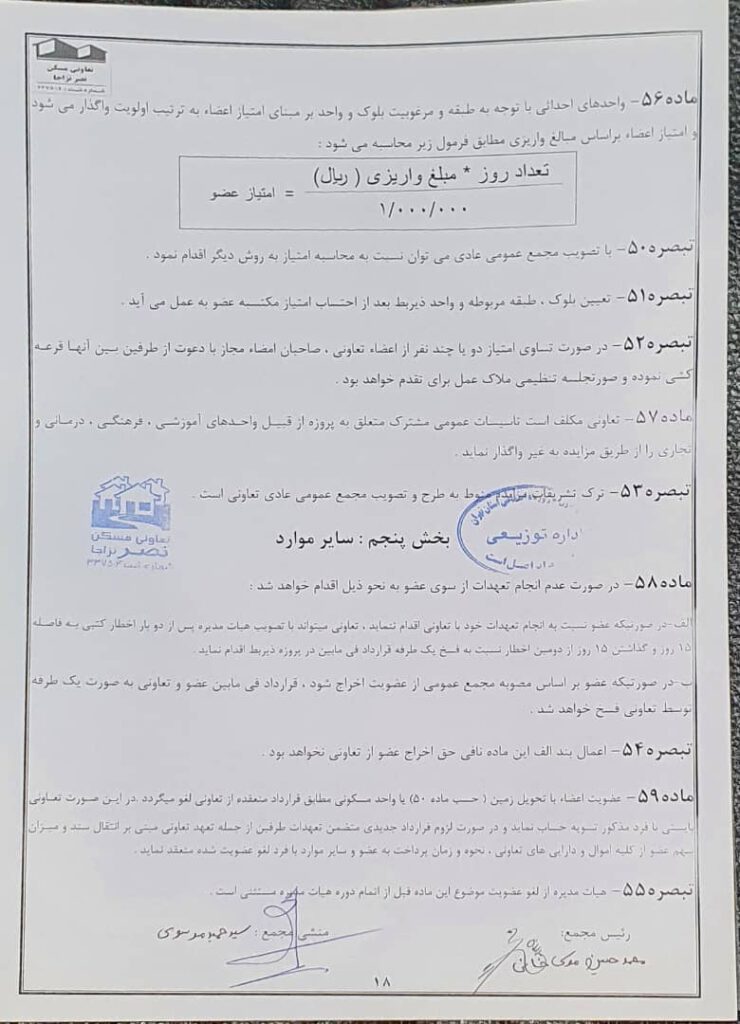 تعاونی مسکن
نصر نزاجا
ماده۵۶- واحدهای احداثی با توجه به طبقه و مرغوبیت بلوک و واحد بر مبنای امتیاز اعضاء به ترتیب اولویت واگذار می شود
و امتیاز اعضاء براساس مبالغ واریزی مطابق فرمول زیر محاسبه می شود :
تعداد روز * مبلغ واریزی ( ریال)
= امتیاز عضو
۱/۰۰۰/۰۰۰
تبصره۵۰- با تصویب مجمع عمومی عادی می توان نسبت به محاسبه امتیاز به روش دیگر اقدام نمود .
تبصره۵۱- تعیین بلوک ، طبقه مربوطه و واحد ذیربط بعد از احتساب امتیاز مکتسبه عضو به عمل می آید .
تبصره۵۲- در صورت تساوی امتیاز دو یا چند نفر از اعضاء تعاونی ، صاحبان امضاء مجاز با دعوت از طرفین بین آنها قرعه
کشی نموده و صورتجلسه تنظیمی ملاک عمل برای تقدم خواهد بود .
ماده۵۷- تعاونی مکلف است تاسیسات عمومی مشترک متعلق به پروژه از قبیل واحدهای آموزشی ، فرهنگی ، درمانی و
تجاری را از طریق مزایده به غیر واگذار نماید .
تبصره۵۳- ترک تشریفات مزایده منوط به طرح و تصویب مجمع عمومی عادی تعاونی است .
استان تهران
اداره توزیعی
اصل است
تعاونی مسکن
نصر نزاجا
بخش پنجم : سایر موارد
ماده۵۸- در صورت عدم انجام تعهدات از سوی عضو به نحو ذیل اقدام خواهد شد :
الف-در صورتیکه عضو نسبت به انجام تعهدات خود با تعاونی اقدام ننماید ، تعاونی میتواند با تصویب هیات مدیره پس از دو بار اخطار کتبی به فاصله
۱۵ روز و گذاشتن ۱۵ روز از دومین اخطار نسبت به فسخ یک طرفه قرارداد فی مابین در پروژه ذیربط اقدام نماید .
ب-در صورتیکه عضو بر اساس مصوبه مجمع عمومی از عضویت اخراج شود ، قرارداد فی مابین عضو و تعاونی به صورت یک طرفه
توسط تعاونی فسخ خواهد شد .
تبصره۵۴- اعمال بند الف این ماده نافی حق اخراج عضو از تعاونی نخواهد بود .
ماده۵۹- عضویت اعضاء با تحویل زمین ( حسب ماده ۵۰) یا واحد مسکونی مطابق قرارداد منعقده از تعاونی لغو میگردد .در این صورت تعاونی
بایستی با فرد مذکور تسویه حساب نماید و در صورت لزوم قرارداد جدیدی متضمن تعهدات طرفین از جمله تعهد تعاونی مبنی بر انتقال سند و میزان
سهم عضو از کلیه اموال و دارایی های تعاونی ، نحوه و زمان پرداخت به عضو و سایر موارد با فرد لغو عضویت شده منعقد نماید .
تبصره۵۵- هیات مدیره از لغو عضویت موضوع این ماده قبل از اتمام دوره هیات مدیره مستثنی است .
رئیس مجمع:
منشی مجمع : سید حمید موسوی
محمد حسین
۱۸